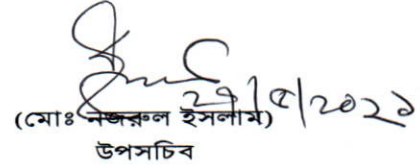 ২৭/৫/২০২১
(মোঃ নজরুল ইসলাম)
উপসচিব